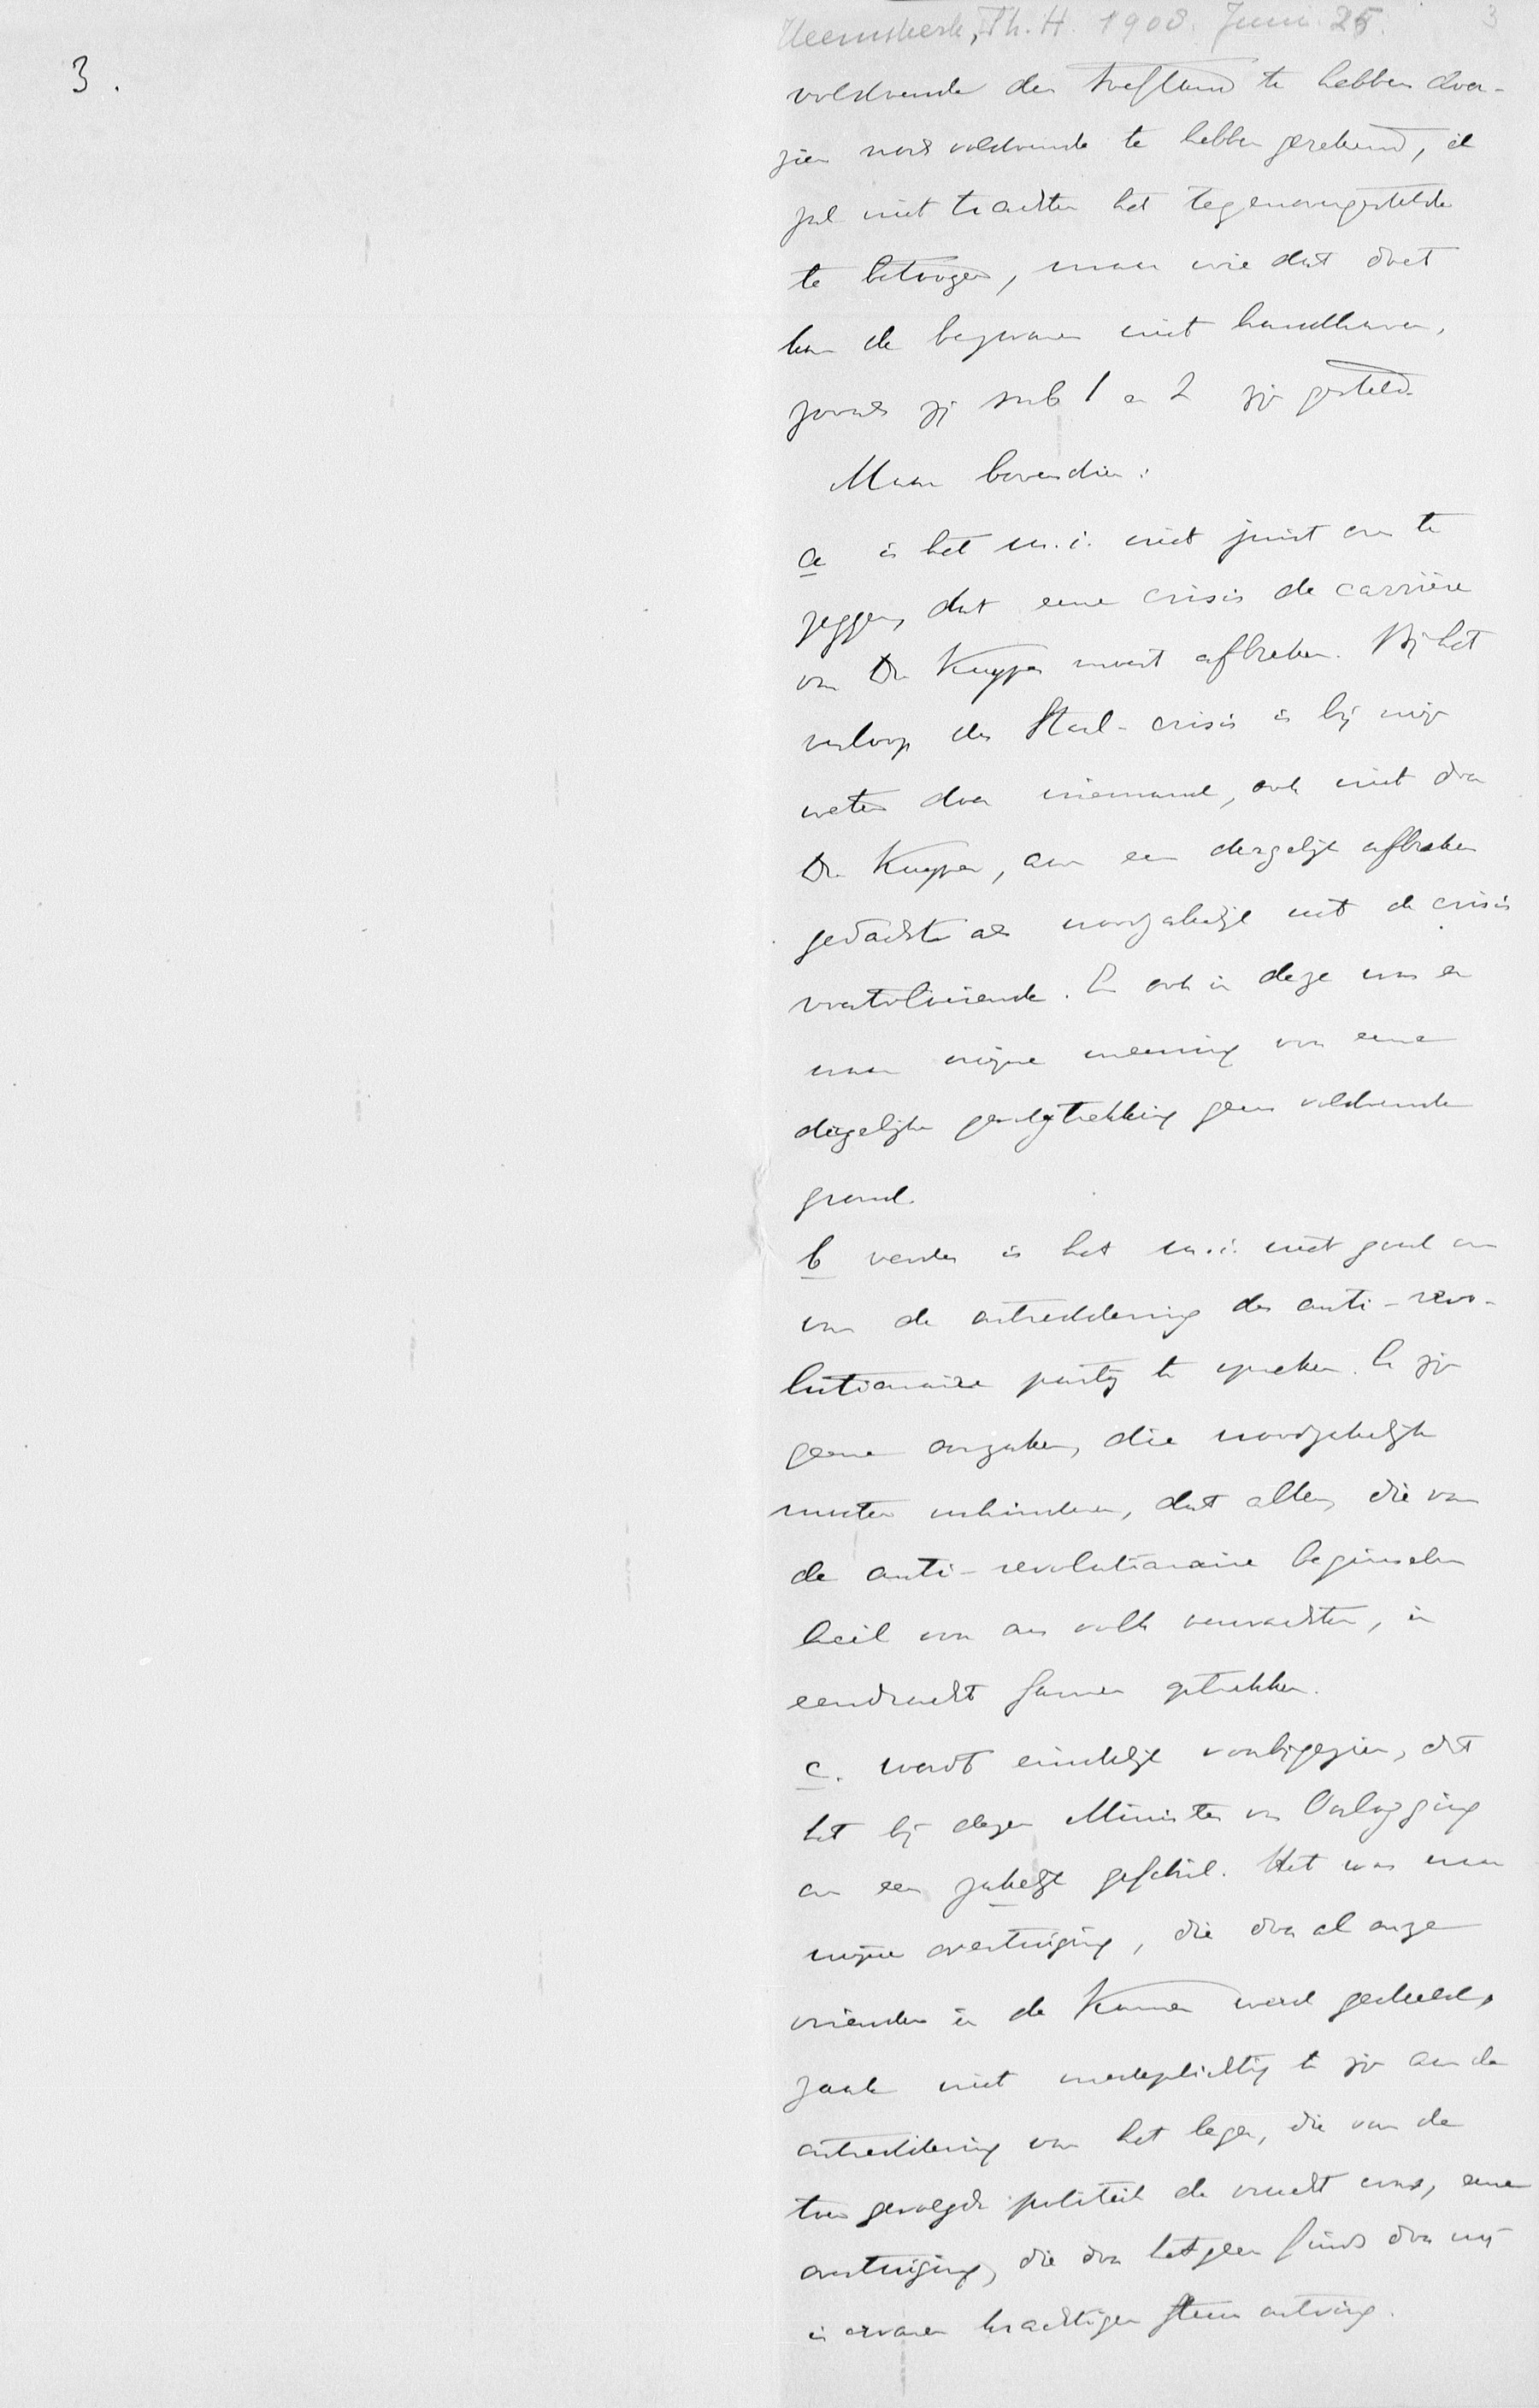 Heemskerk, Th. H. 1908. Juni 25. 3
3.
voldoende den toestand te hebben door-
zien noch voldoende te hebben gerekend, ik
zal niet trachten het tegenovergestelde
te betoogen, maar wie dat doet
kan de bezwaren niet handhaven,
zooals zij sub 1 en 2 zijn gesteld.
Maar bovendien:
a is het m.i. niet juist om te
zeggen, dat eene crisis de carrière
van Dr Kuyper moest afbreken. Bij het
verloop der Staal-crisis is bij mijn
weten door niemand, ook niet door
Dr. Kuyper, aan een dergelijk afbreken
gedacht als noodzakelijk uit de crisis
voortvloeiende. En ook in deze was er
naar mijne meening voor eene
dergelijke gevolgtrekking geen voldoende
grond.
b verder is het m.i. niet goed om
van de ontreddering der anti-revo-
lutionaire partij te spreken. Er zijn
geene oorzaken, die noodzakelijk
moeten verhinderen, dat allen, die van
de anti-revolutionaire beginselen
heil voor ons volk verwachten, in
eendracht samen optrekken.
c. wordt eindelijk voorbijgezien, dat
het bij dezen Minister van Oorlog ging
om een zakelijk geschil. Het was naar
mijne overtuiging, die door al onze
vrienden in de Kamer werd gedeeld,
zaak niet medeplichtig te zijn aan de
ontreddering van het leger, die van de
toen gevolgde politiek de vrucht was, eene
overtuiging, die door hetgeen sinds door mij
is ervaren krachtigen steun ontving.